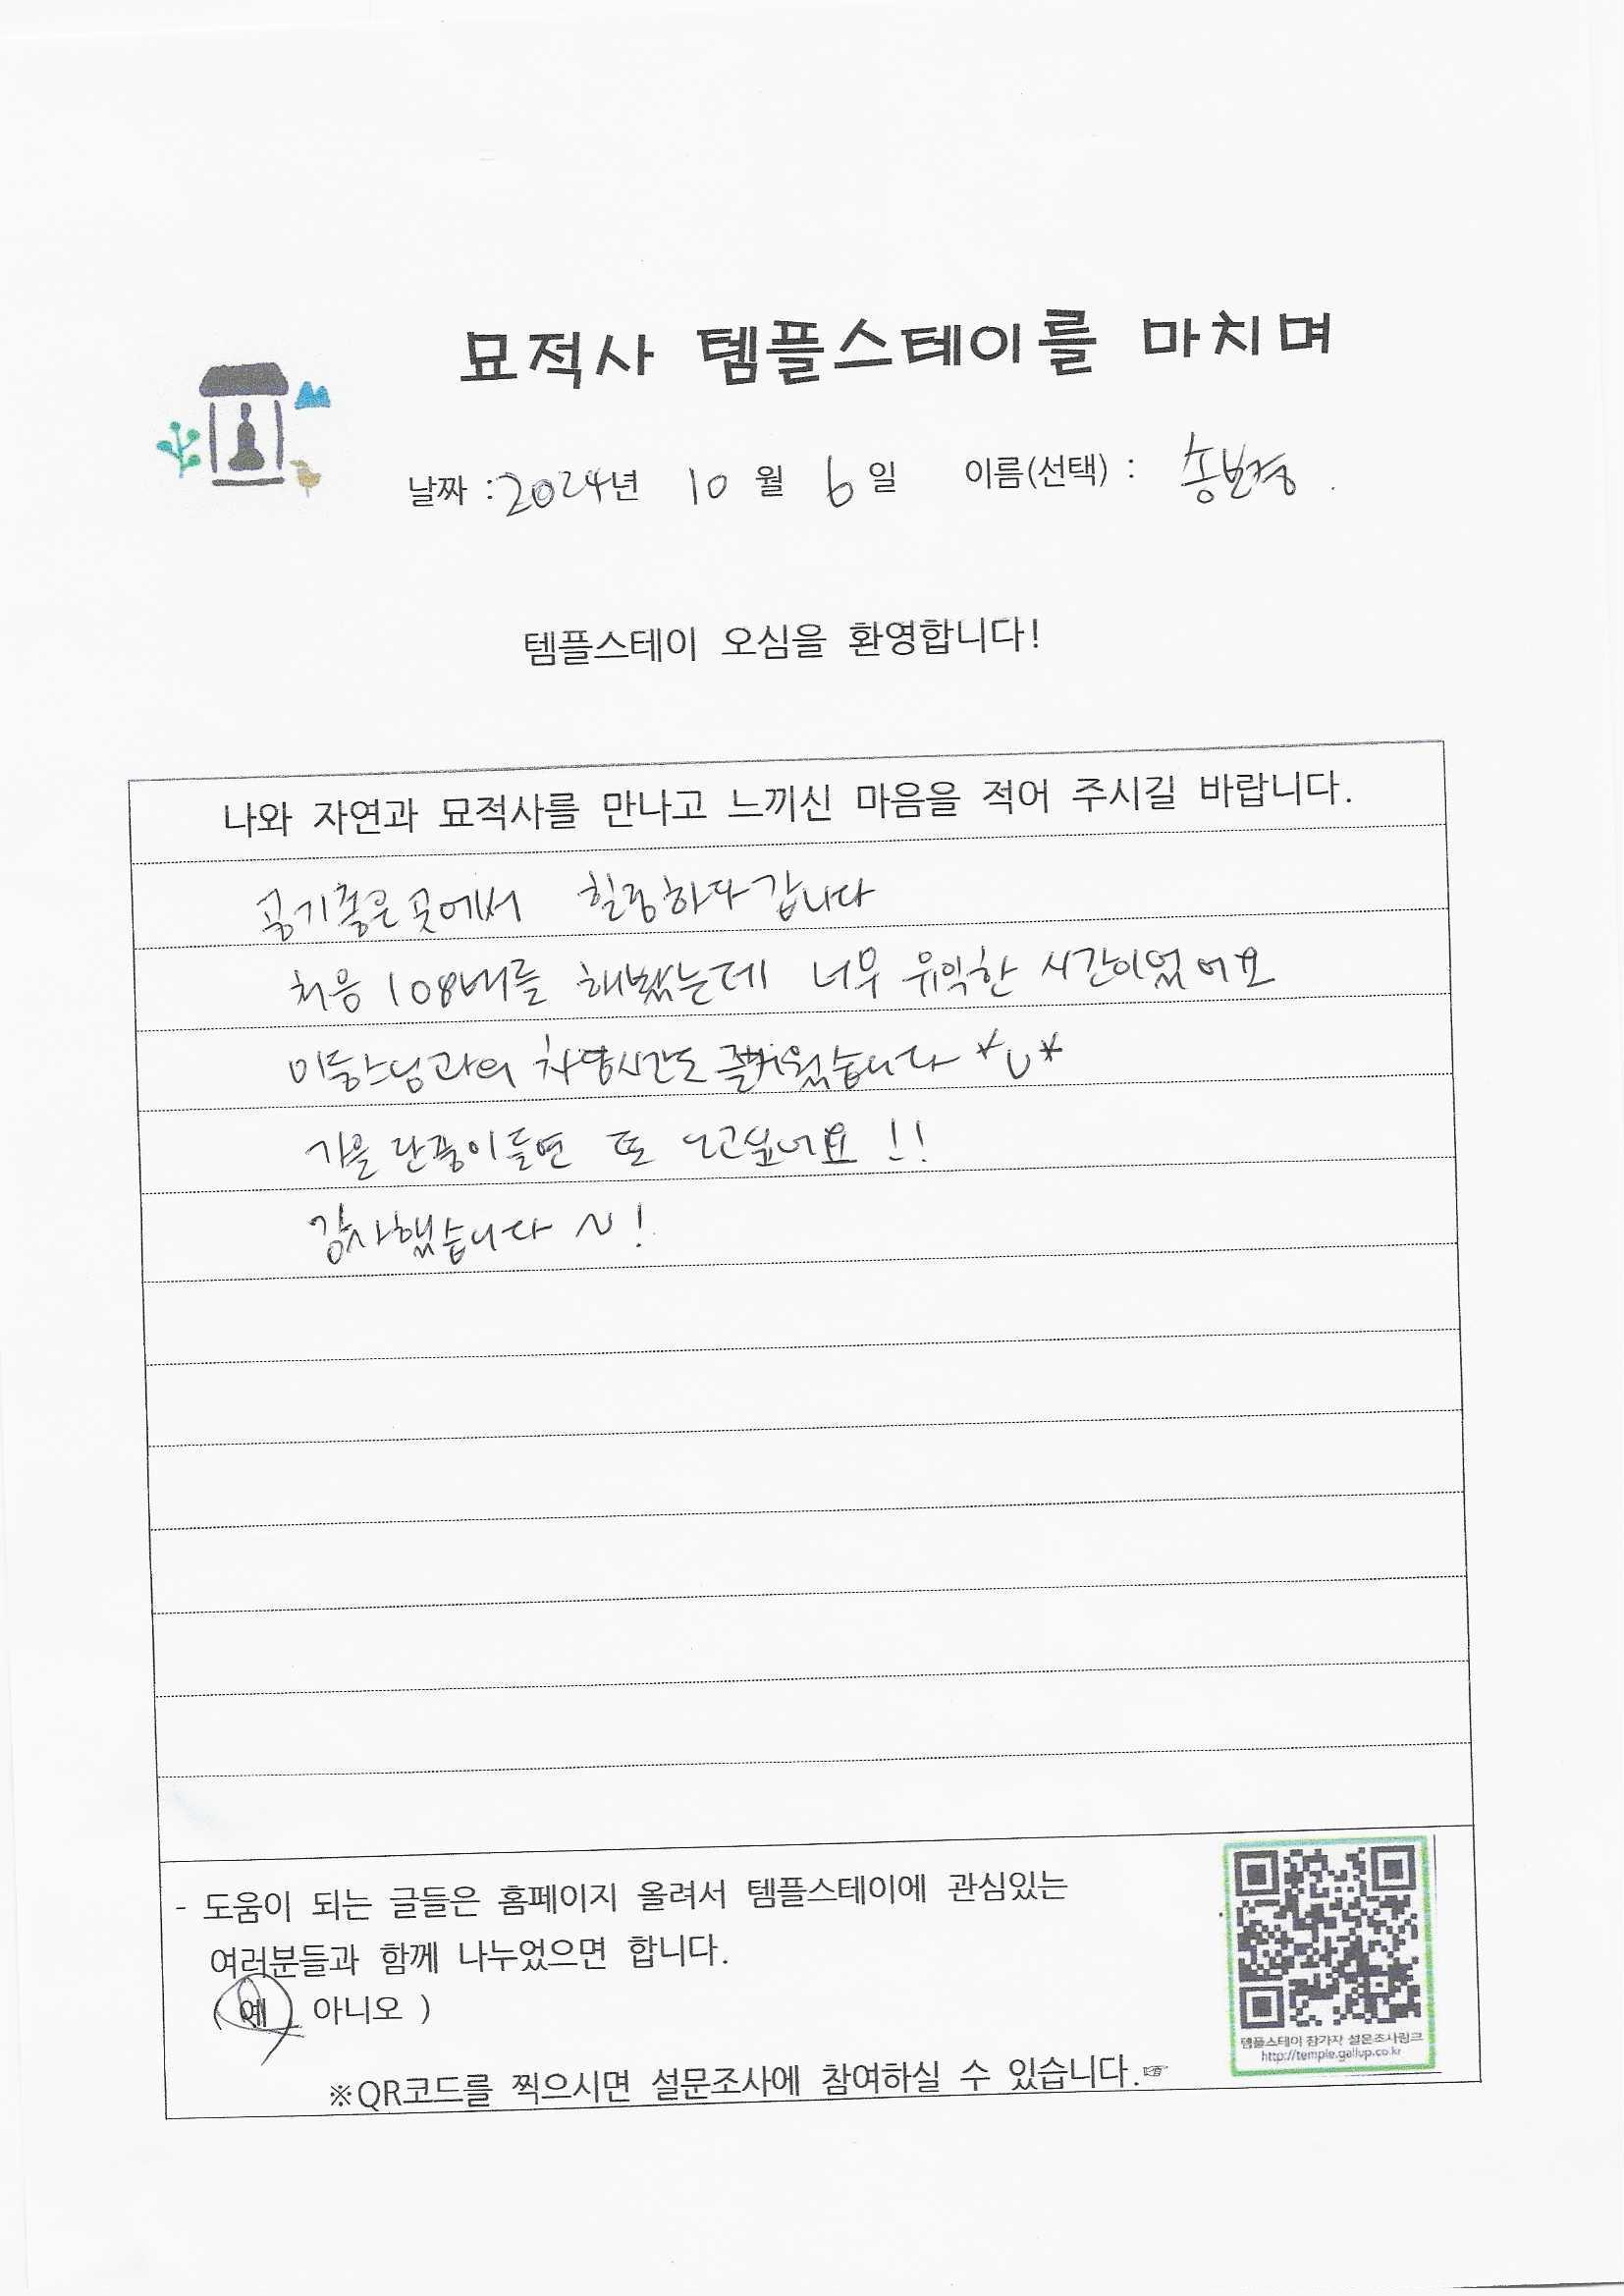 묘적사 템플스테이를 마치며
날짜 : 2024년 10 월 6 일 이름(선택) : 송보경
템플스테이 오심을 환영합니다!
나와 자연과 묘적사를 만나고 느끼신 마음을 적어 주시길 바랍니다.
공기좋은곳에서 힐링하다 갑니다
처음 108배를 해봤는데 너무 유익한 시간이었어요
스님과의 차담시간도 즐거웠습니다 *U*
가을 단풍이들면 또 오고싶네요 !!
감사했습니다 ~!
- 도움이 되는 글들은 홈페이지 올려서 템플스테이에 관심있는
여러분들과 함께 나누었으면 합니다.
( 예 아니오 )
템플스테이 참가자 설문조사링크
http://temple.gallup.co.kr
※QR코드를 찍으시면 설문조사에 참여하실 수 있습니다.☞